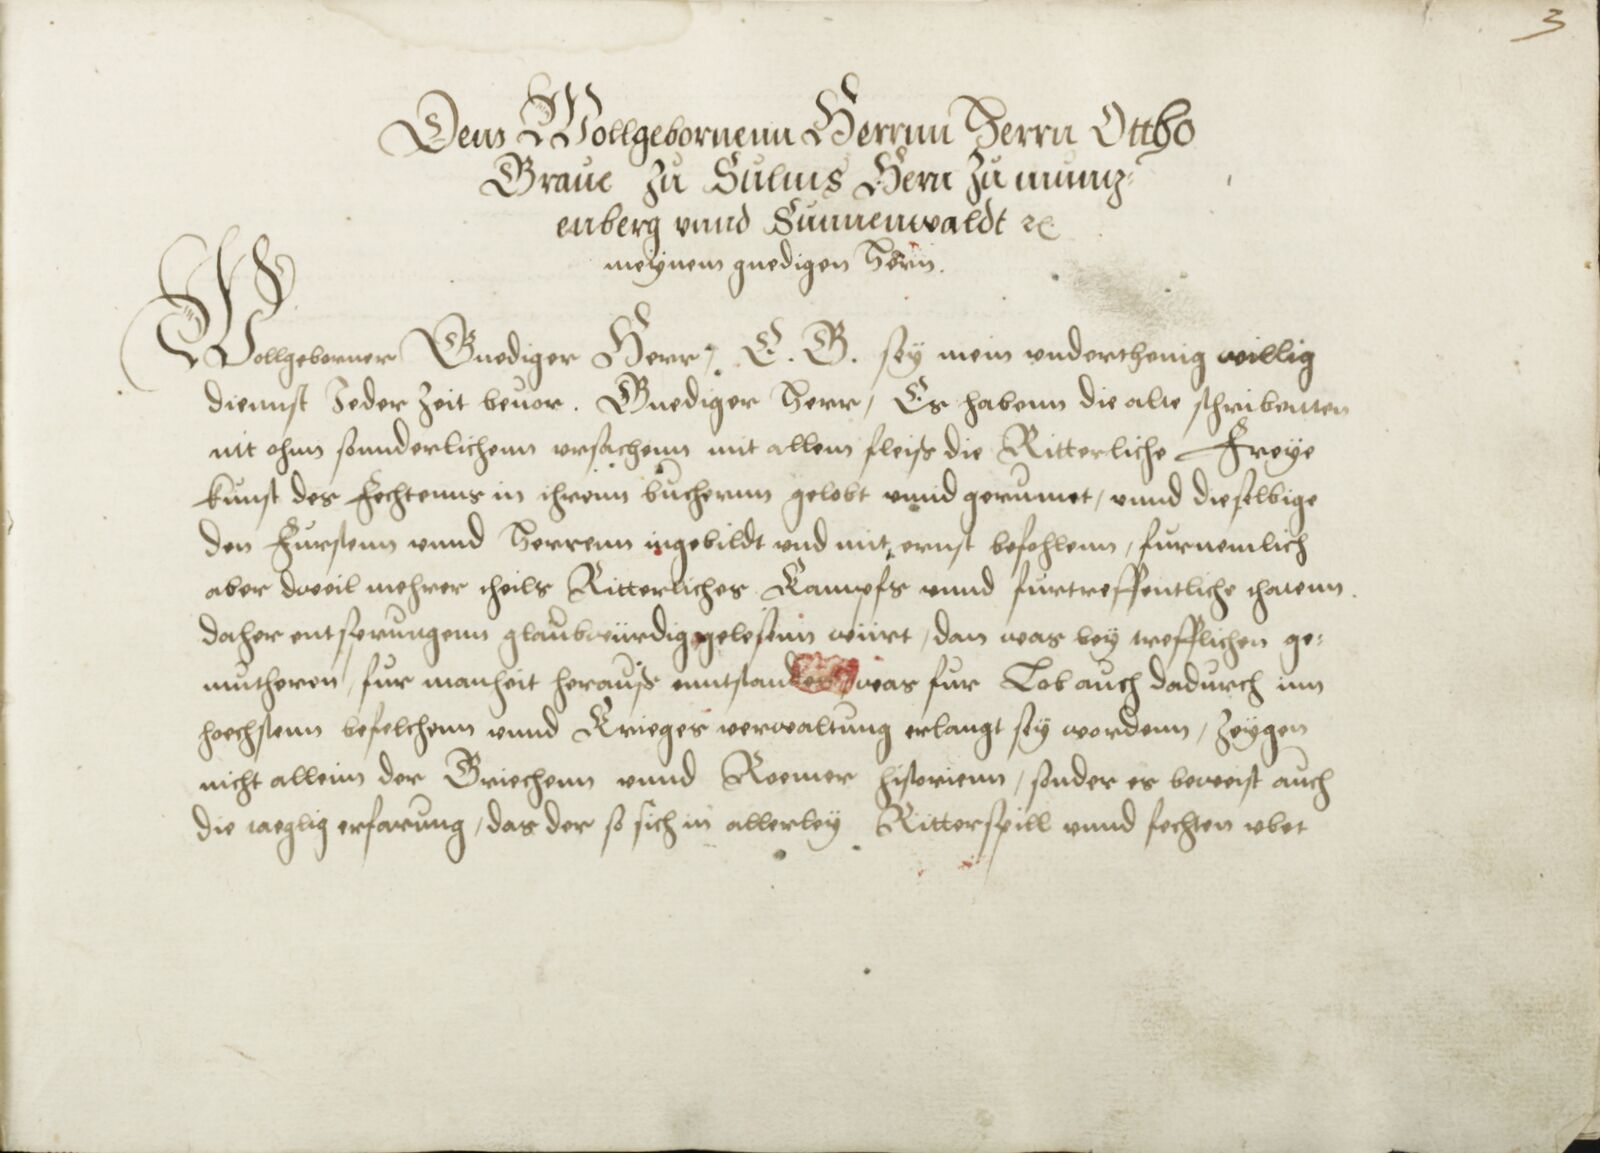 3
Dem Wollgebornenn Herrnn Herrn Ottho
Graue zu Sulms Hern zu muntz-
enberg vnnd Sunnenwaldt ꝛc
meynem gnedigen Hern.
Wollgeborner Gnediger Herr, E. G. sey mein vnderthenig willig
diennst Jeder zeit beuor. Gnediger Herr, Es habenn die alte schribenten
nit ohnn sonnderlichenn vrsachenn mit allem fleiss die Ritterliche Freye
kunst des Fechtenns in ihrenn buchernn gelobt vnnd gerumet, vnnd dieselbige
den Furstenn vnnd Herrenn ingebildt vnd mit ernst befohlenn, furnemlich
aber dweil mehrer theils Ritterliches Kampfs vnnd furtreffentliche thatenn
daher entsprungenn glaubwürdig gelesenn würt, dan was bey trefflichen ge-
mutheren, fur manheit herauss enntstanden, was fur Lob auch dadurch inn
hoechstenn befelchenn vnnd Krieges verwaltung erlangt sey wordenn, zeygen
nicht alleinn der Griechenn vnnd Roemer historienn, sonder es beweist auch
die taeglig erfarung, das der so sich in allerley Ritterspill vnnd fechten vbet